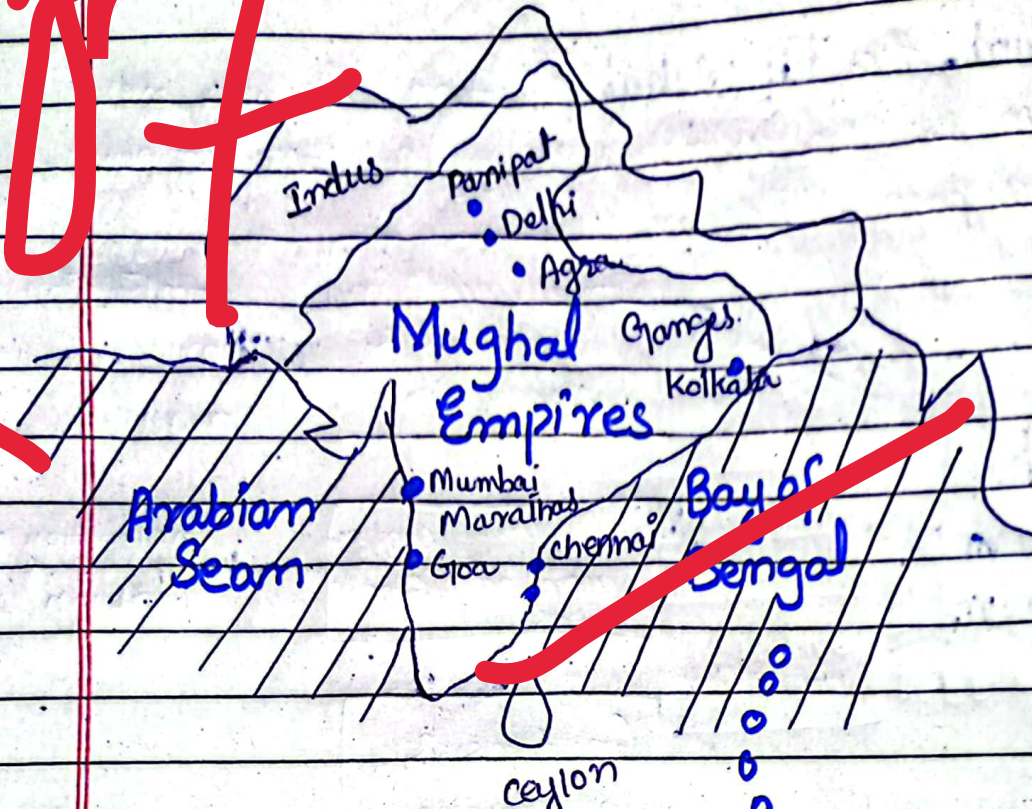 Indus
Panipat
Delhi
Agra
Mughal
Empires
Ganges.
Kolkata
Mumbai
Marathas
Goa
Chennai
Arabian
Seam
Bay of
Bengal
Ceylon